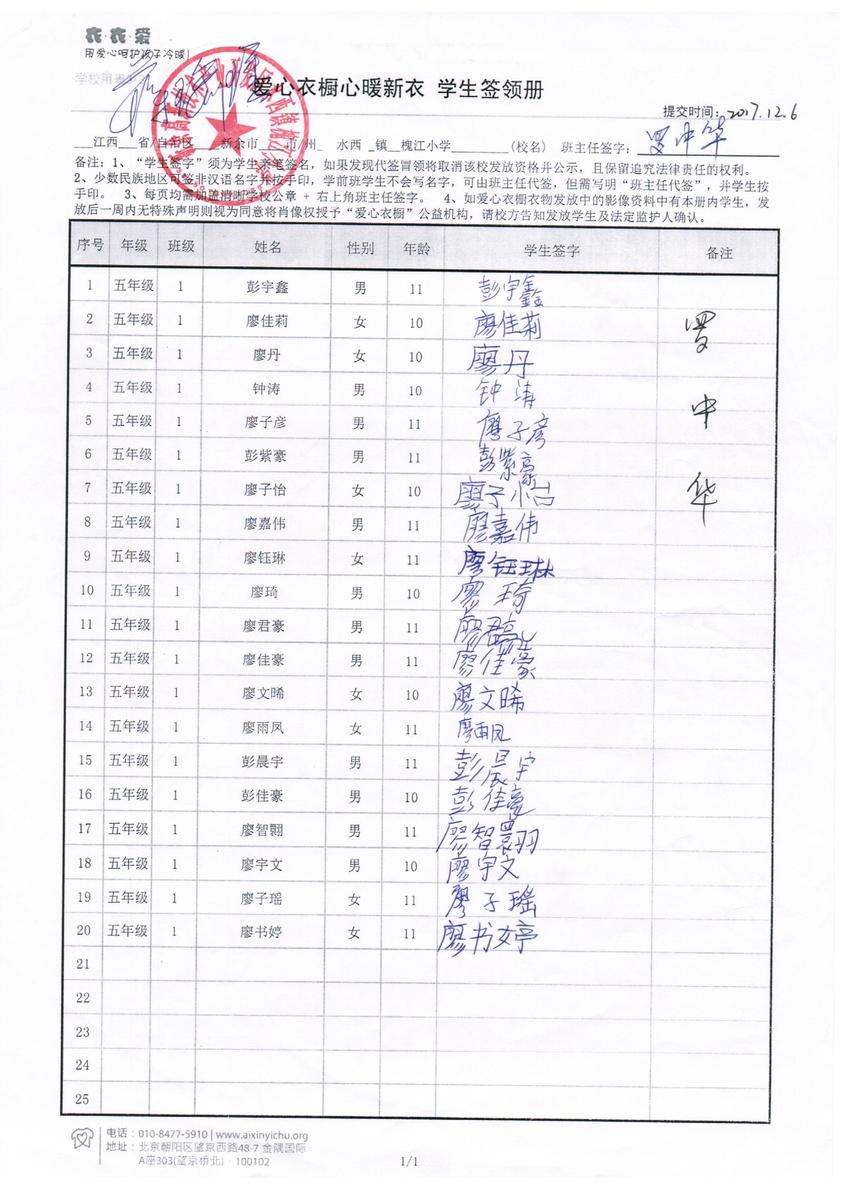 衣·衣·爱
用爱心呵护孩子冷暖!
学校用表
爱心衣橱心暖新衣 学生签领册
提交时间: 2017.12.6
江西 省/自治区 新余市 市/州 水西 镇 槐江小学 (校名) 班主任签字: 罗中华
备注: 1、“学生签字”须为学生亲笔签名，如果发现代签冒领将取消该校发放资格并公示，且保留追究法律责任的权利。
2、少数民族地区可签非汉语名字并按手印，学前班学生不会写名字，可由班主任代签，但需写明“班主任代签”，并学生按
手印。 3、每页均需加盖清晰学校公章 + 右上角班主任签字。 4、如爱心衣橱衣物发放中的影像资料中有本册内学生，发
放后一周内无特殊声明则视为同意将肖像权授予“爱心衣橱”公益机构，请校方告知发放学生及法定监护人确认。
序号 年级 班级 姓名 性别 年龄 学生签字 备注
1 五年级 1 彭宇鑫 男 11 彭宇鑫
2 五年级 1 廖佳莉 女 10 廖佳莉 罗
3 五年级 1 廖丹 女 10 廖丹
4 五年级 1 钟涛 男 10 钟涛
5 五年级 1 廖子彦 男 11 廖子彦 中
6 五年级 1 彭紫豪 男 11 彭紫豪
7 五年级 1 廖子怡 女 10 廖子怡 华
8 五年级 1 廖嘉伟 男 11 廖嘉伟
9 五年级 1 廖钰琳 女 11 廖钰琳
10 五年级 1 廖琦 男 10 廖琦
11 五年级 1 廖君豪 男 11 廖君豪
12 五年级 1 廖佳豪 男 11 廖佳豪
13 五年级 1 廖文晞 女 10 廖文晞
14 五年级 1 廖雨凤 女 11 廖雨凤
15 五年级 1 彭晨宇 男 11 彭晨宇
16 五年级 1 彭佳豪 男 10 彭佳豪
17 五年级 1 廖智翾 男 11 廖智翾
18 五年级 1 廖宇文 男 10 廖宇文
19 五年级 1 廖子瑶 女 11 廖子瑶
20 五年级 1 廖书婷 女 11 廖书婷
21
22
23
24
25
电话：010-8477-5910 | www.aixinyichu.org
地址：北京朝阳区望京西路48-7 金隅国际
A座303(望京桥北) · 100102
1/1